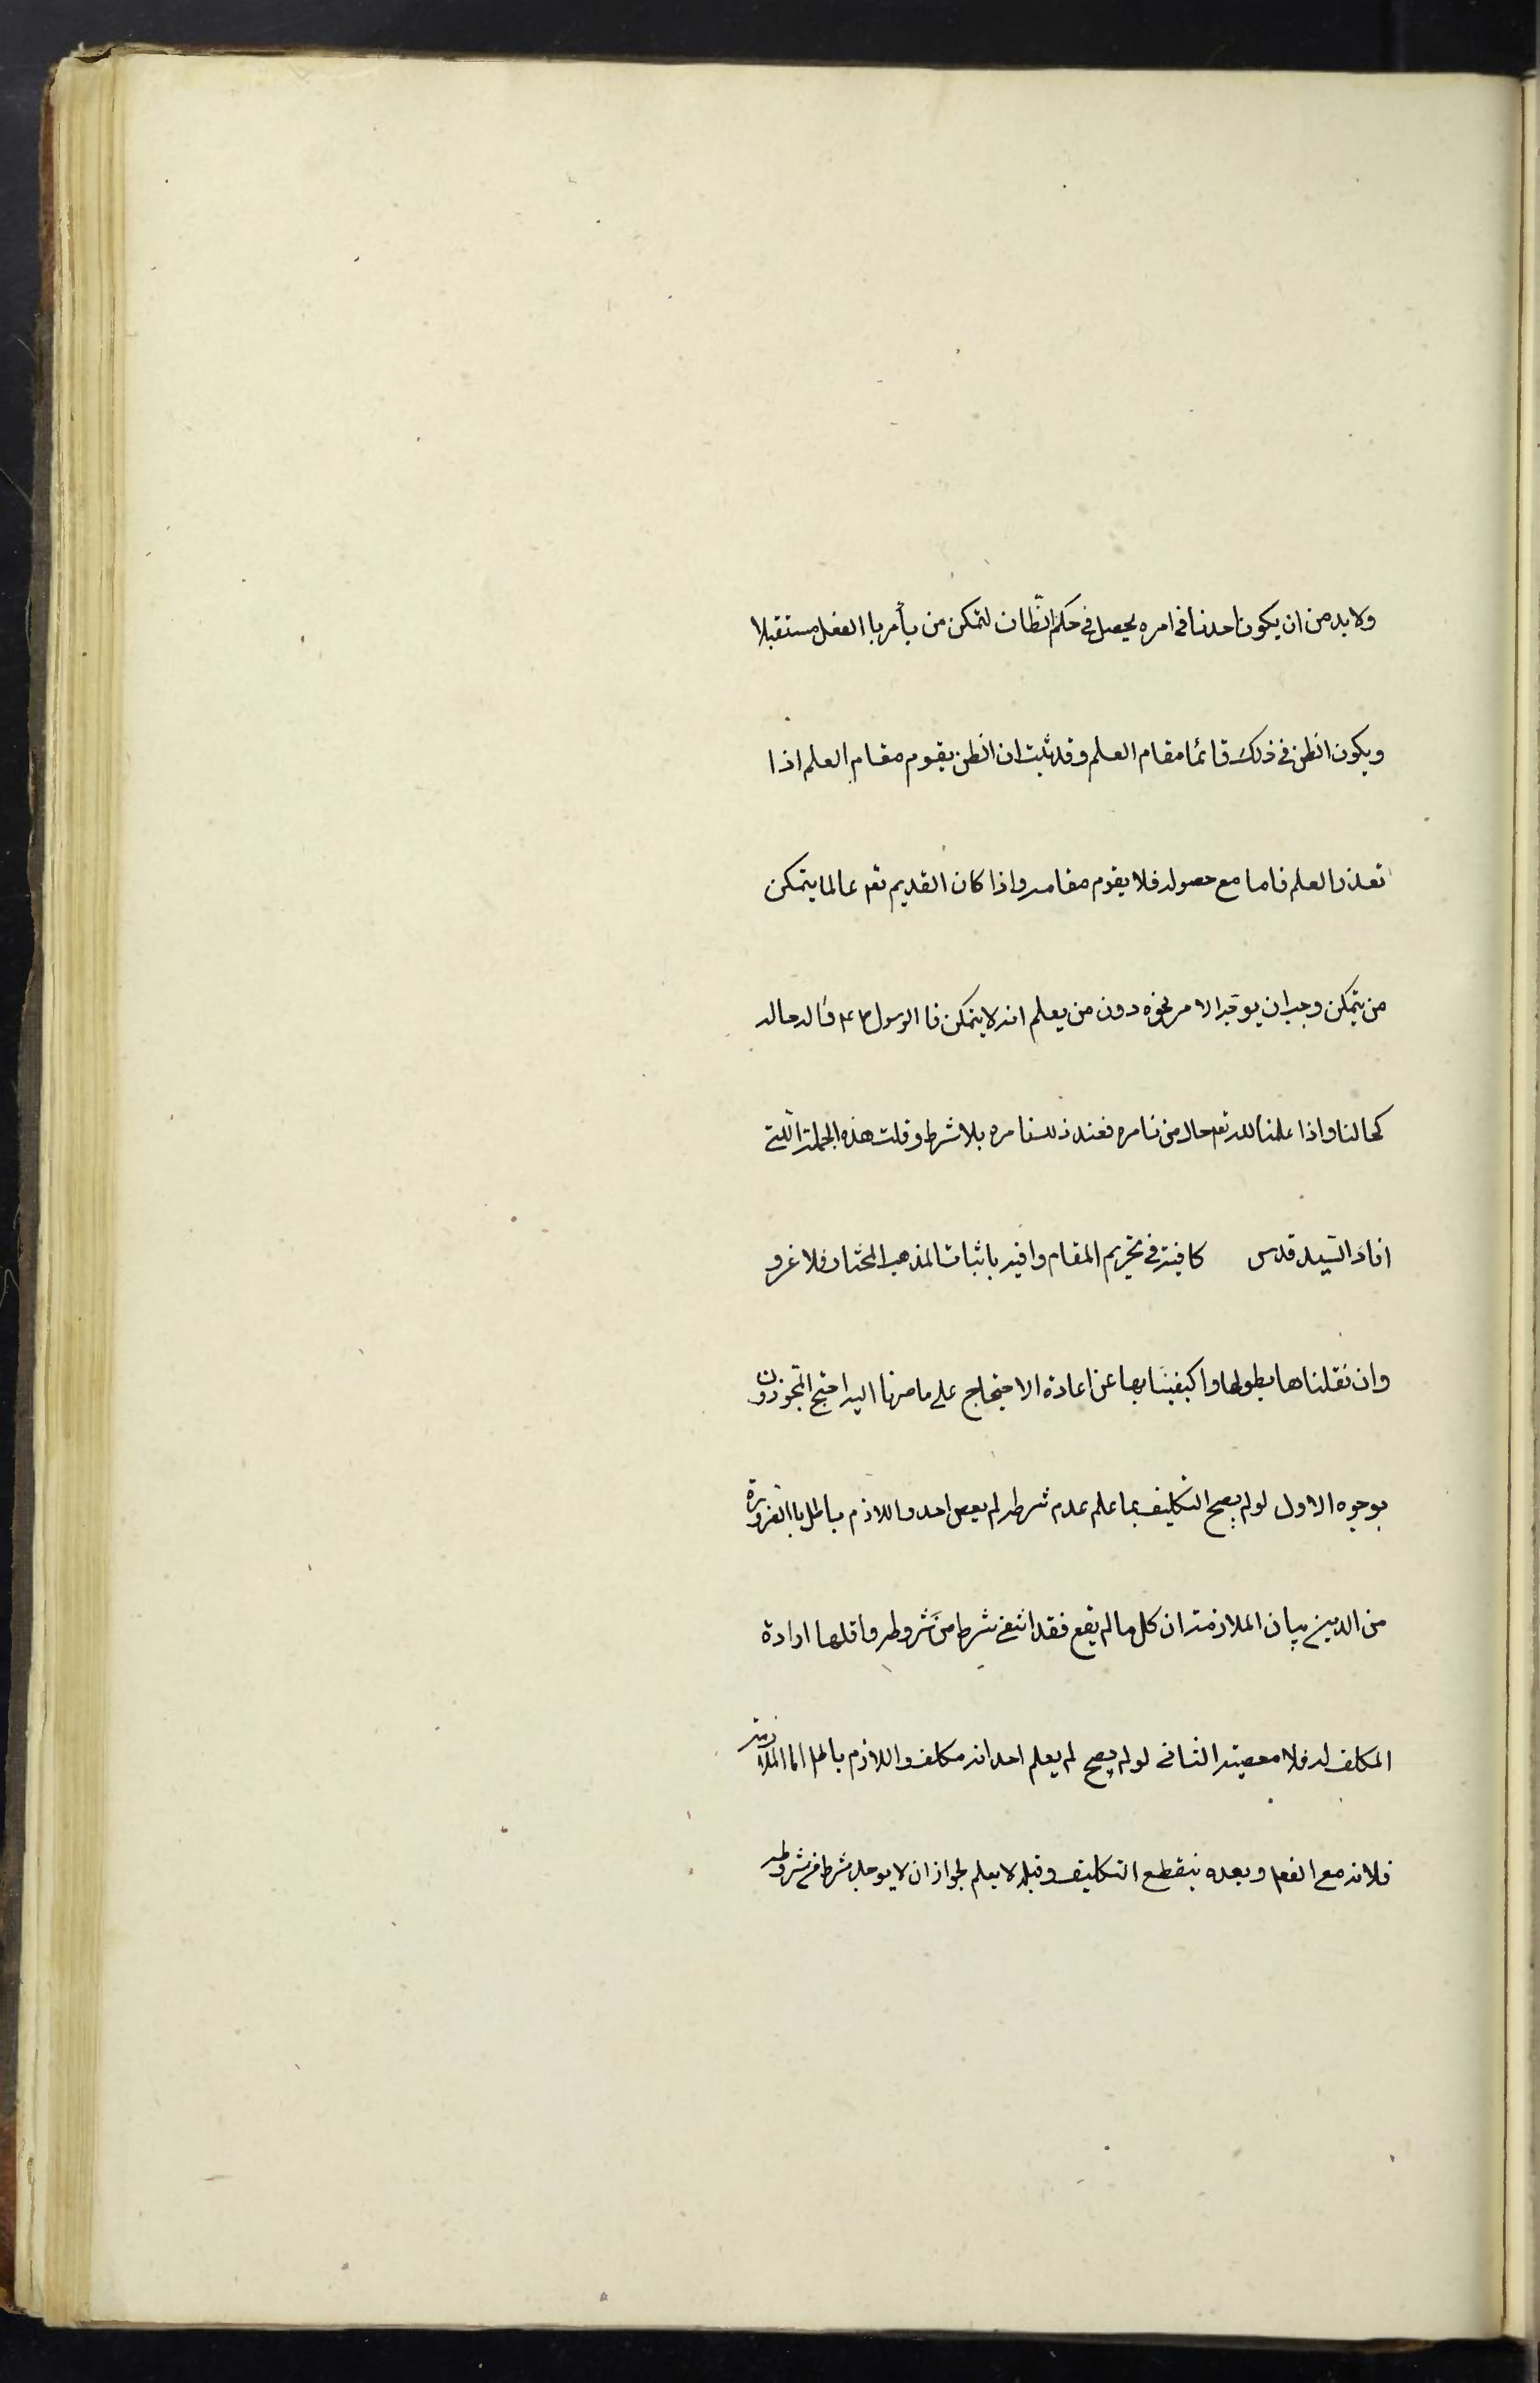 ولا بد من ان يكون احدنا فى امره يحصل فى حكم الظان لتمكن من يأمر باالفعل مستقبلا
ويكون الظن فى ذلك قائما مقام العلم وقد ثبت ان الظن يقوم مقام العلم اذا
تعذر العلم فاما مع حصوله فلا يقوم مقامه واذا كان القديم تعم عالما يتمكن
من يتمكن وجب ان يوجه الامر نحوه دون من يعلم انه لا يتمكن فاالرسول ص حاله
كحالنا واذا علمنا الله تعم حال من نامره فعند ذلك نامره بلا شرط وقلت هذه الجملة اللتى
افاد السيد قدس كافية فى تحرير المقام وافية باثبات المذهب المختار فلا غرو
وان نقلناها بطولها واكتفينا بها عن اعادة الاحتجاج على ما صرنا اليه احتج المجوزون
بوجوه الاول لو لم يصح التكليف بما علم عدم شرطه لم يعص احد واللازم باطل باالضرورة
من الدين بيان الملازمة ان كل ما لم يقع فقد انتفى شرط من شروطه واقلها ارادة
المكلف له فلا معصية الثانى لو لم يصح لم يعلم احد انه مكلف واللازم باطل اما الملازمة
فلانه مع الفعل وبعده ينقطع التكليف وقبله لا يعلم لجواز ان لا يوجد شرط من شروطه